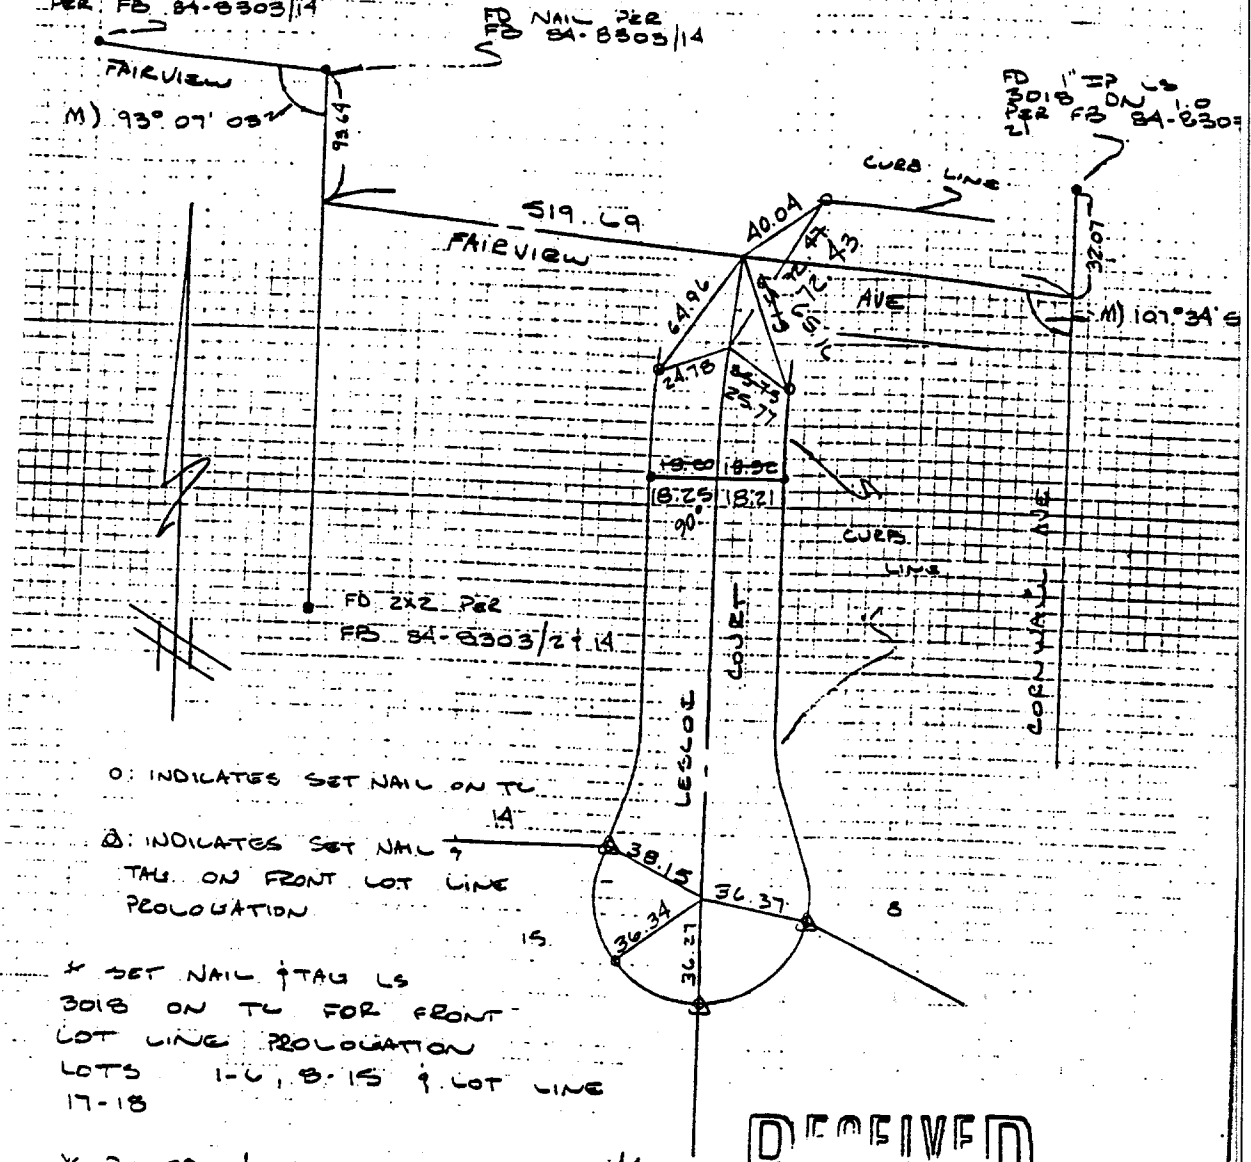 PER FB 84-8303/14
FD NAIL PER
FB 84-8303/14
FAIRVIEW
M) 93° 07' 03"
93.64
FD 1" IP LS
3018 DN 1.0
PER FB 84-8303
21
CURB LINE
519.69
FAIRVIEW
AVE
40.04
32.07
M) 107° 34' 5
64.96
24.78
25.77
18.25 18.21
90°
CURB
LINE
FD 2X2 PER
FB 84-8303/2 & 14
LESCOE
COURT
CORNWALL AVE
O: INDICATES SET NAIL ON TC
14
△: INDICATES SET NAIL &
TAG ON FRONT LOT LINE
PROLOGATION
38.15
36.37
8
15
36.34
36.27
* SET NAIL & TAG LS
3018 ON TC FOR FRONT
LOT LINE PROLOGATION
LOTS 1-6, 8-15 & LOT LINE
17-18
RECEIVED